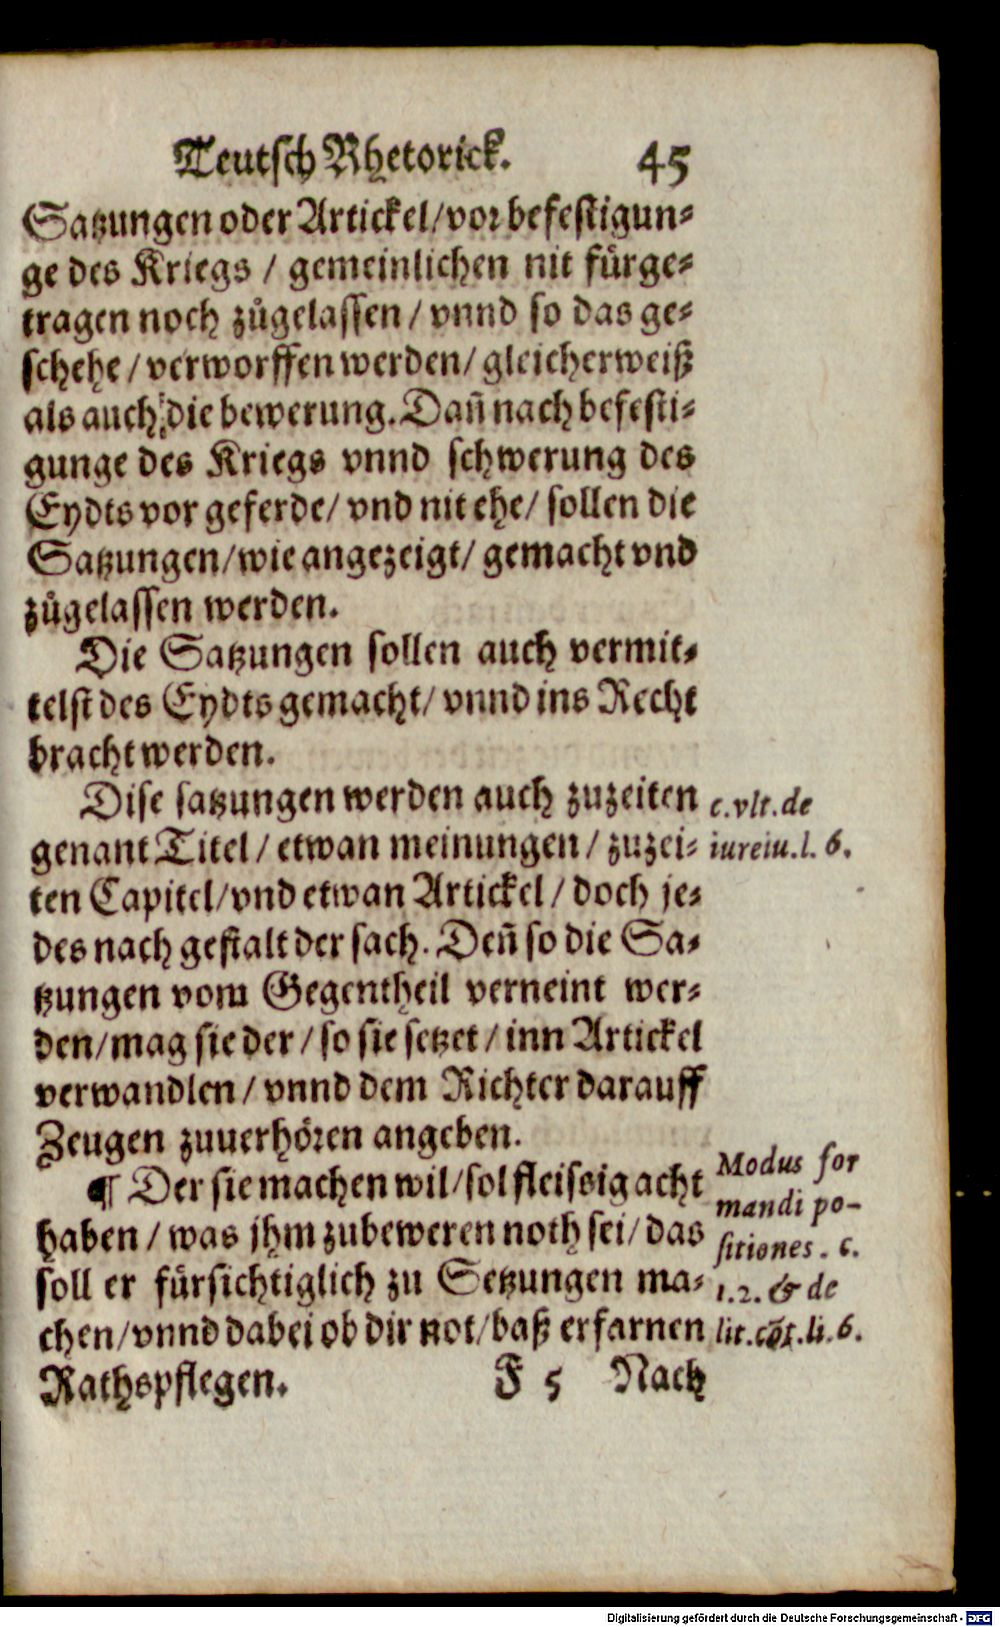 Teutsch Rhetorick. 45
Satzungen oder Artickel/vor befestigun-
ge des Kriegs / gemeinlichen nit fürge-
tragen noch zůgelassen / vnnd so das ge-
schehe / verworffen werden/ gleicherweiß
als auch die bewerung. Dañ nach befesti-
gunge des Kriegs vnnd schwerung des
Eydts vor geferde/ vnd nit ehe/ sollen die
Satzungen/wie angezeigt/ gemacht vnd
zůgelassen werden.
Die Satzungen sollen auch vermit-
telst des Eydts gemacht/ vnnd ins Recht
bracht werden.
Dise satzungen werden auch zuzeiten
c.vlt.de
genant Titel / etwan meinungen / zuzei-
iureiu.l. 6.
ten Capitel/vnd etwan Artickel / doch je-
des nach gestalt der sach. Deñ so die Sa-
tzungen vom Gegentheil verneint wer-
den/mag sie der / so sie setzet / inn Artickel
verwandlen / vnnd dem Richter darauff
Zeugen zuuerhören angeben.
¶ Der sie machen wil/sol fleissig acht
Modus for
mandi po-
haben / was jhm zubeweren noth sei/ das
sitiones. c.
soll er fürsichtiglich zu Setzungen ma-
1.2. & de
chen/vnnd dabei ob dir not/baß erfarnen
lit.cõt.li.6.
Rathspflegen. F 5 Nach
Digitalisierung gefördert durch die Deutsche Forschungsgemeinschaft - DFG